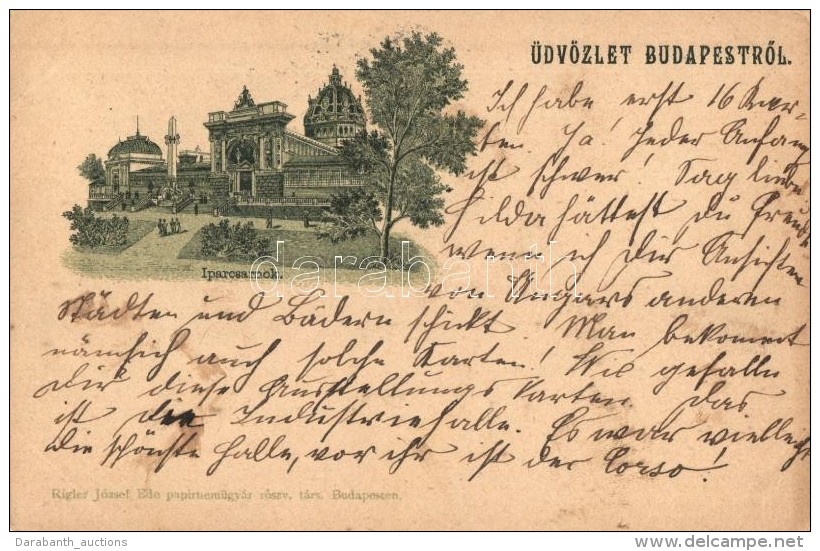 ÜDVÖZLET BUDAPESTRŐL.
Ich habe erst 16 Kar-
ten. Ja! Jeder Anfang
ist schwer! Sag liebe
Hilda hättest du Freude
wenn ich Dir Ansichten
Iparcsarnok.
von Ungars anderen
Städten und Bädern schickt. Man bekommt
nämlich auch solche Karten! Wie gefallen
Dir diese Ausstellungs Karten das
ist die Industriehalle. Es war vielleicht
die schönste Halle, vor ihr ist der Corso!
Rigler József Ede papírneműgyár részv. társ. Budapesten.
darabanth.com
Darabanth_auctions
delcampe.net